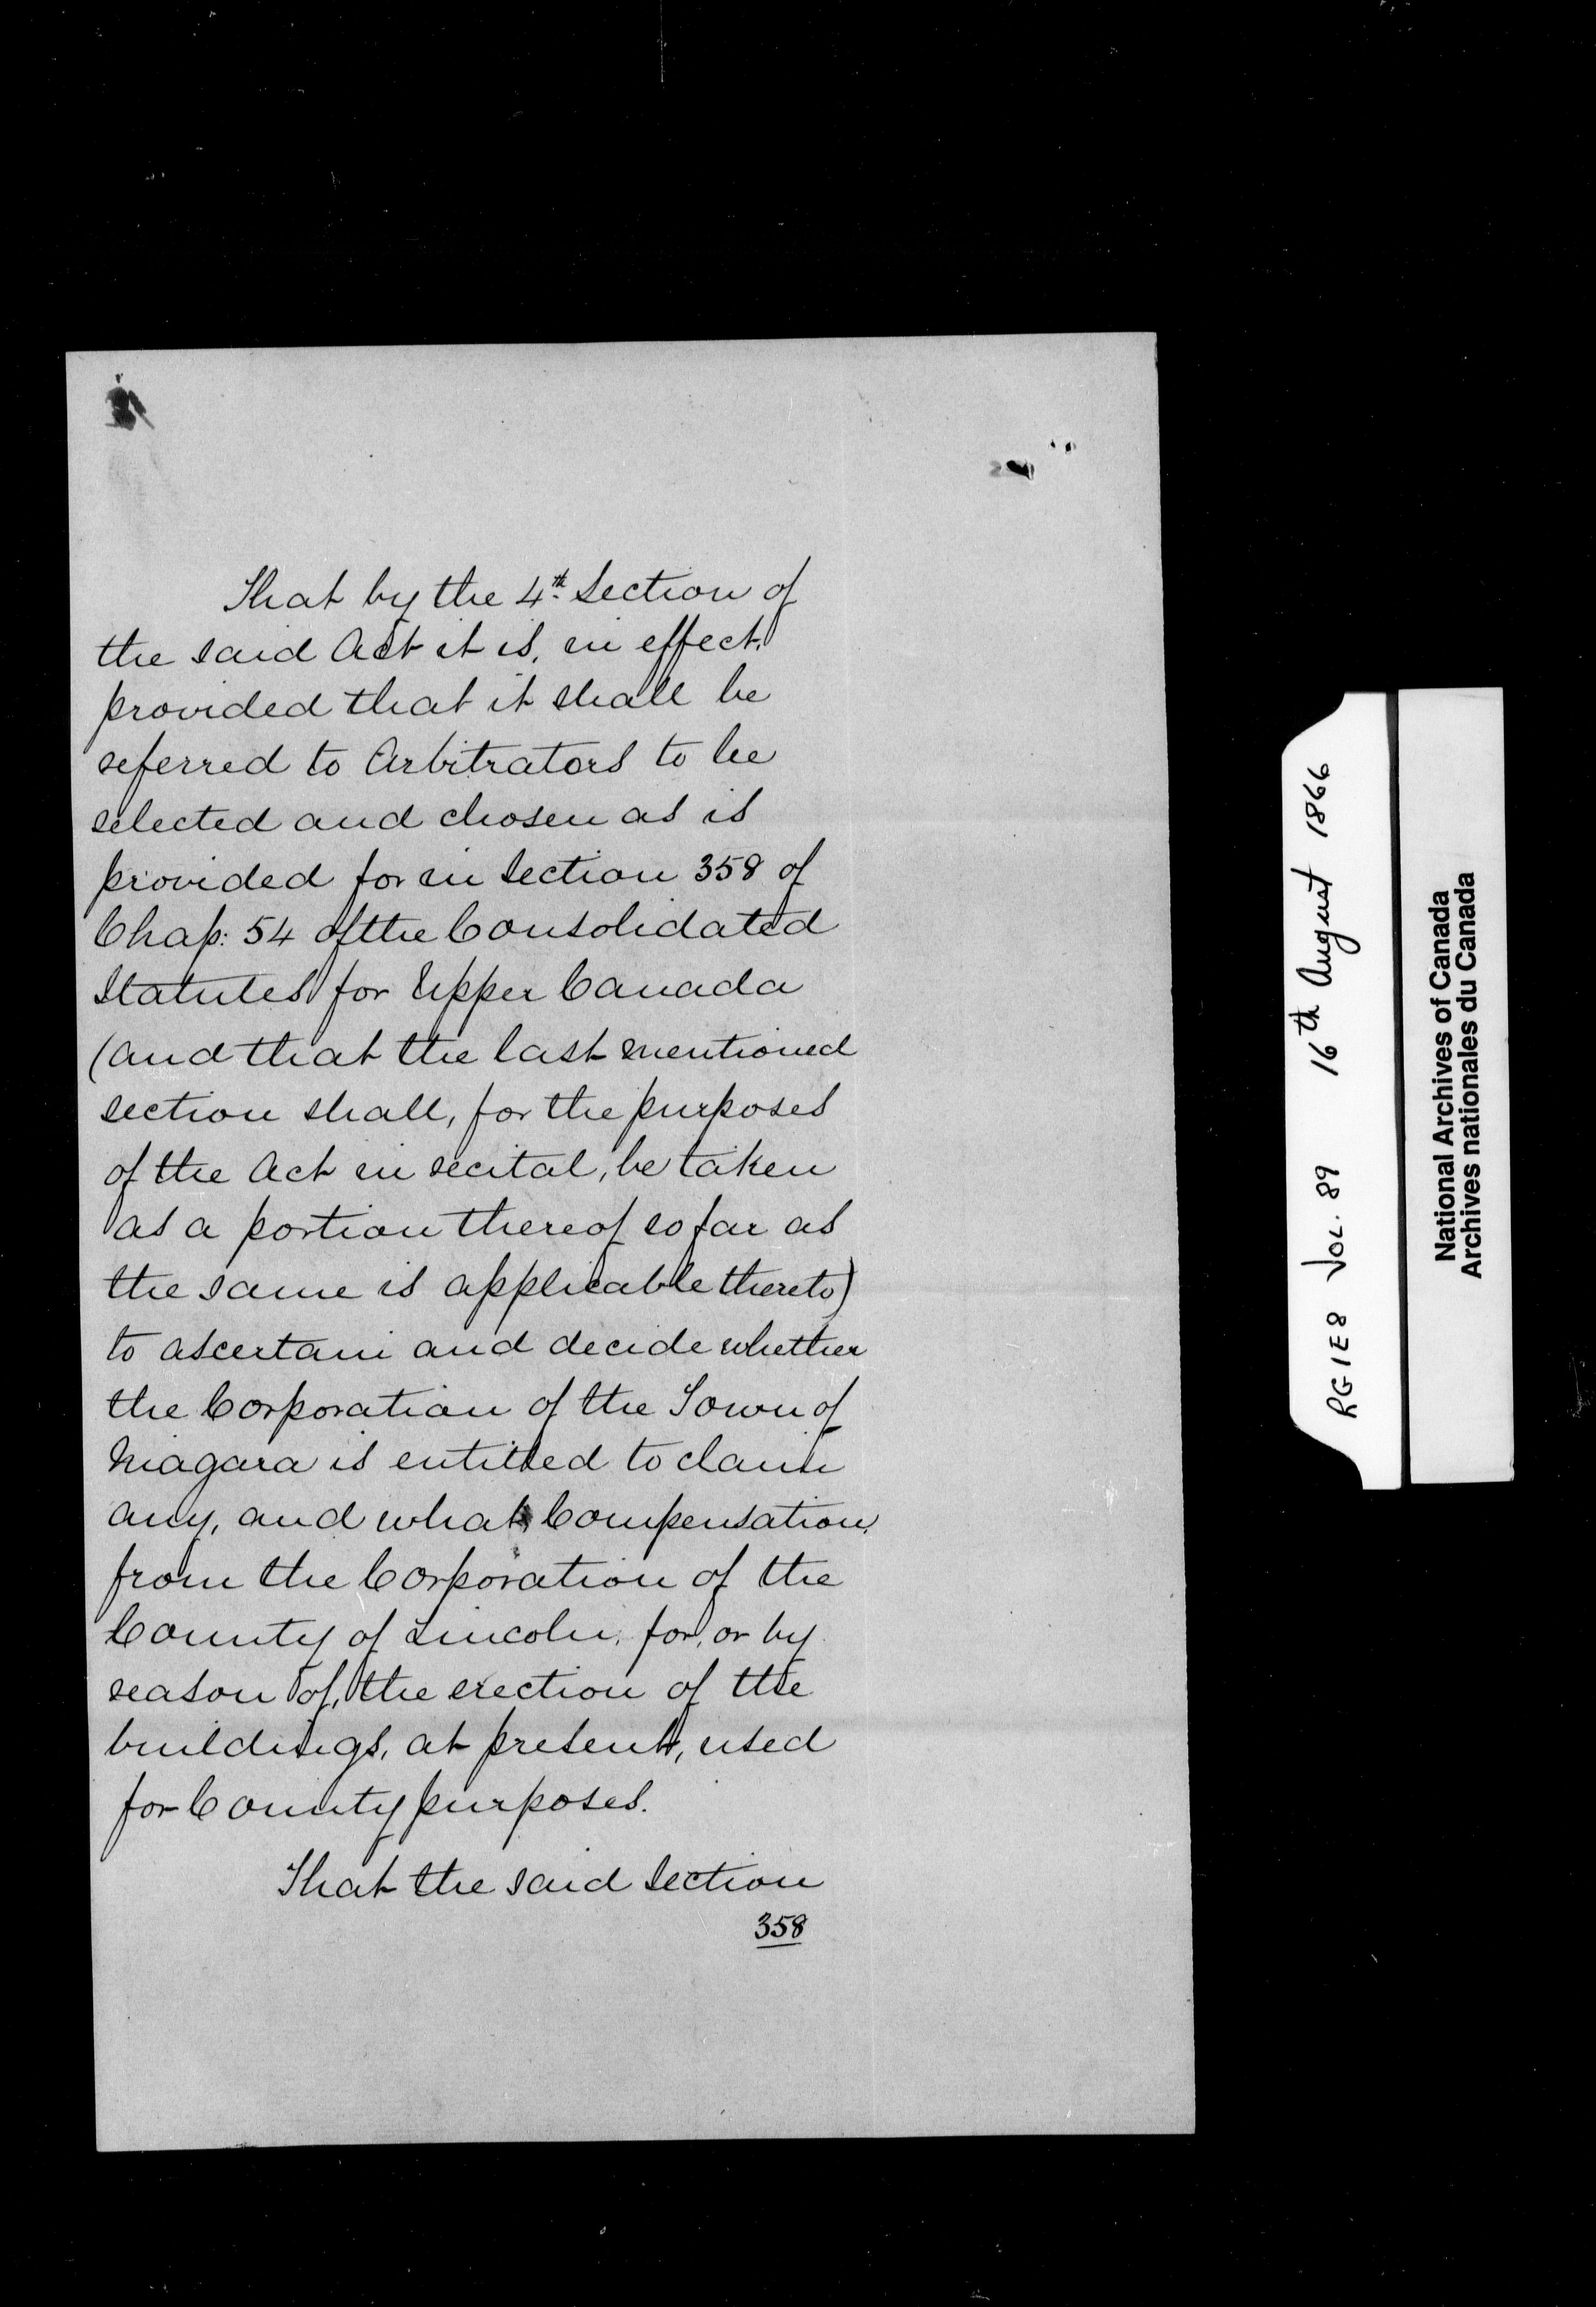 That by the 4th. Section of
the said Act it is, in effect,
provided that it shall be
referred to Arbitrators to be
selected and chosen as is
provided for in Section 358 of
Chap: 54 of the Consolidated
Statutes for Upper Canada
(and that the last mentioned
section shall, for the purposes
of the Act in recital, be taken
as a portion thereof so far as
the same is applicable thereto)
to ascertain and decide whether
the Corporation of the Town of
Niagara is entitled to claim
any, and what, Compensation,
from the Corporation of the
County of Lincoln, for, or by
reason of, the erection of the
buildings, at present, used
for County purposes.
That the said Section
358
RG1E8 VOL. 89 16th August 1866
National Archives of Canada
Archives nationales du Canada